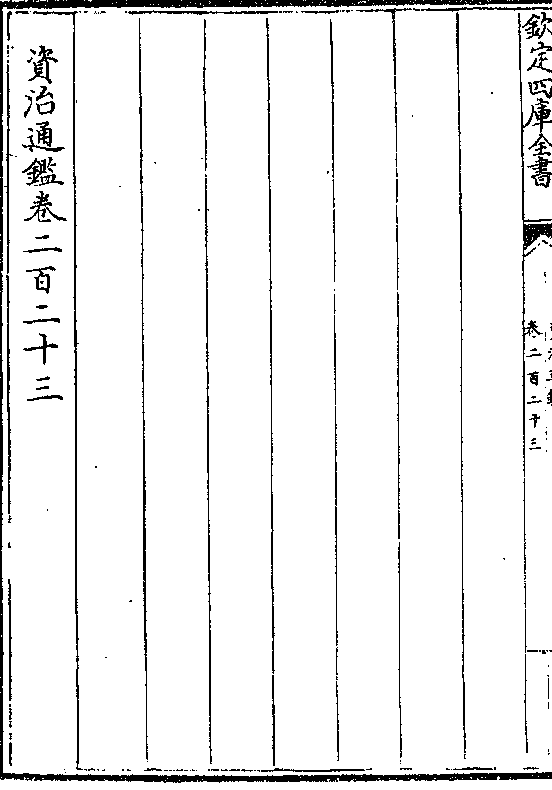 欽定四庫全書
卷二百二十三
資治通鑑卷二百二十三